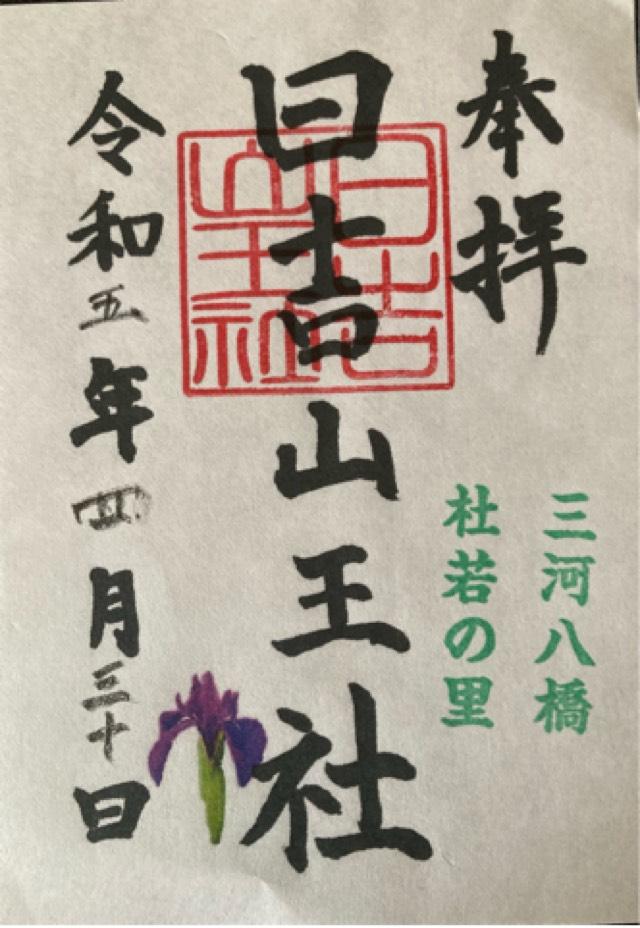 奉拝
三河八橋
杜若の里
日吉山王社
日吉
山王社
令和五年四月三十日